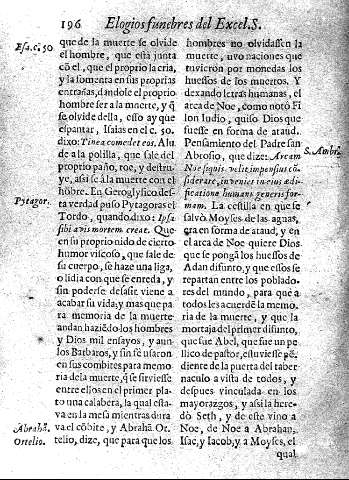 196 Elogios funebres del Excel. S.
Esa. c. 50.
que de la muerte se olvide
el hombre, que està junta
cõ el, que el proprio la cria,
y la fomenta en sus proprias
entrañas, dandose el proprio
hombre ser a la muerte, y q̃
se olvide della, esso ay que
espantar, Isaias en el c. 50.
dixo: Tinea comedet eos. Alu-
de a la polilla, que sale del
proprio paño, roe, y destru-
ye, assi se à la muerte con el
hõbre. En Geroglyfico des-
Pytagor.
ta verdad puso Pytagoras el
Tordo, quando dixo: Ipsa
sibi avis mortem creat. Que
en su proprio nido de cierto
humor viscoso, que sale de
su cuerpo, se haze una liga,
o lidia con que se enreda, y
sin poderse desasir viene a
acabar su vida; y mas que pa
ra memoria de la muerte
andan haziẽdo los hombres
y Dios mil ensayos, y aun
los Barbaros, y sin fè usaron
en sus combites para memo
ria de la muerte, q̃ se sirviesse
entre ellos en el primer pla-
to una calabera, la qual esta-
va en la mesa mientras dura
Abrahã.
Ortelio.
va el cõbite, y Abrahã Or-
telio, dize, que para que los
hombres no olvidassen la
muerte, uvo naciones que
tuvieron por monedas los
huessos de los muertos. Y
dexando letras humanas, el
arca de Noe, como notò Fi
lon Iudio, quiso Dios que
fuesse en forma de ataud.
Pensamiento del Padre san
S. Ambr.
Ambrosio, que dize: Arcam
Noe si quis velit impensius cõ
siderare, invenies in eius ædi-
ficatione humani generis for-
mam. La cestilla en que se
salvò Moyses de las aguas,
era en forma de ataud, y en
el arca de Noe quiere Dios
que se pongã los huessos de
Adan difunto, y que essos se
repartan entre los poblado-
res del mundo, para que a
todos les acuerdẽ la memo-
ria de la muerte, y que la
mortaja del primer difunto,
que fue Abel, que fue un pe
llico de pastor, estuviesse pẽ-
diente de la puerta del taber
naculo a vista de todos, y
despues vinculada en los
mayorazgos, y assi la here-
dò Seth, y de este vino a
Noe, de Noe a Abrahan,
Isac, y Iacob, y a Moyses, el
qual